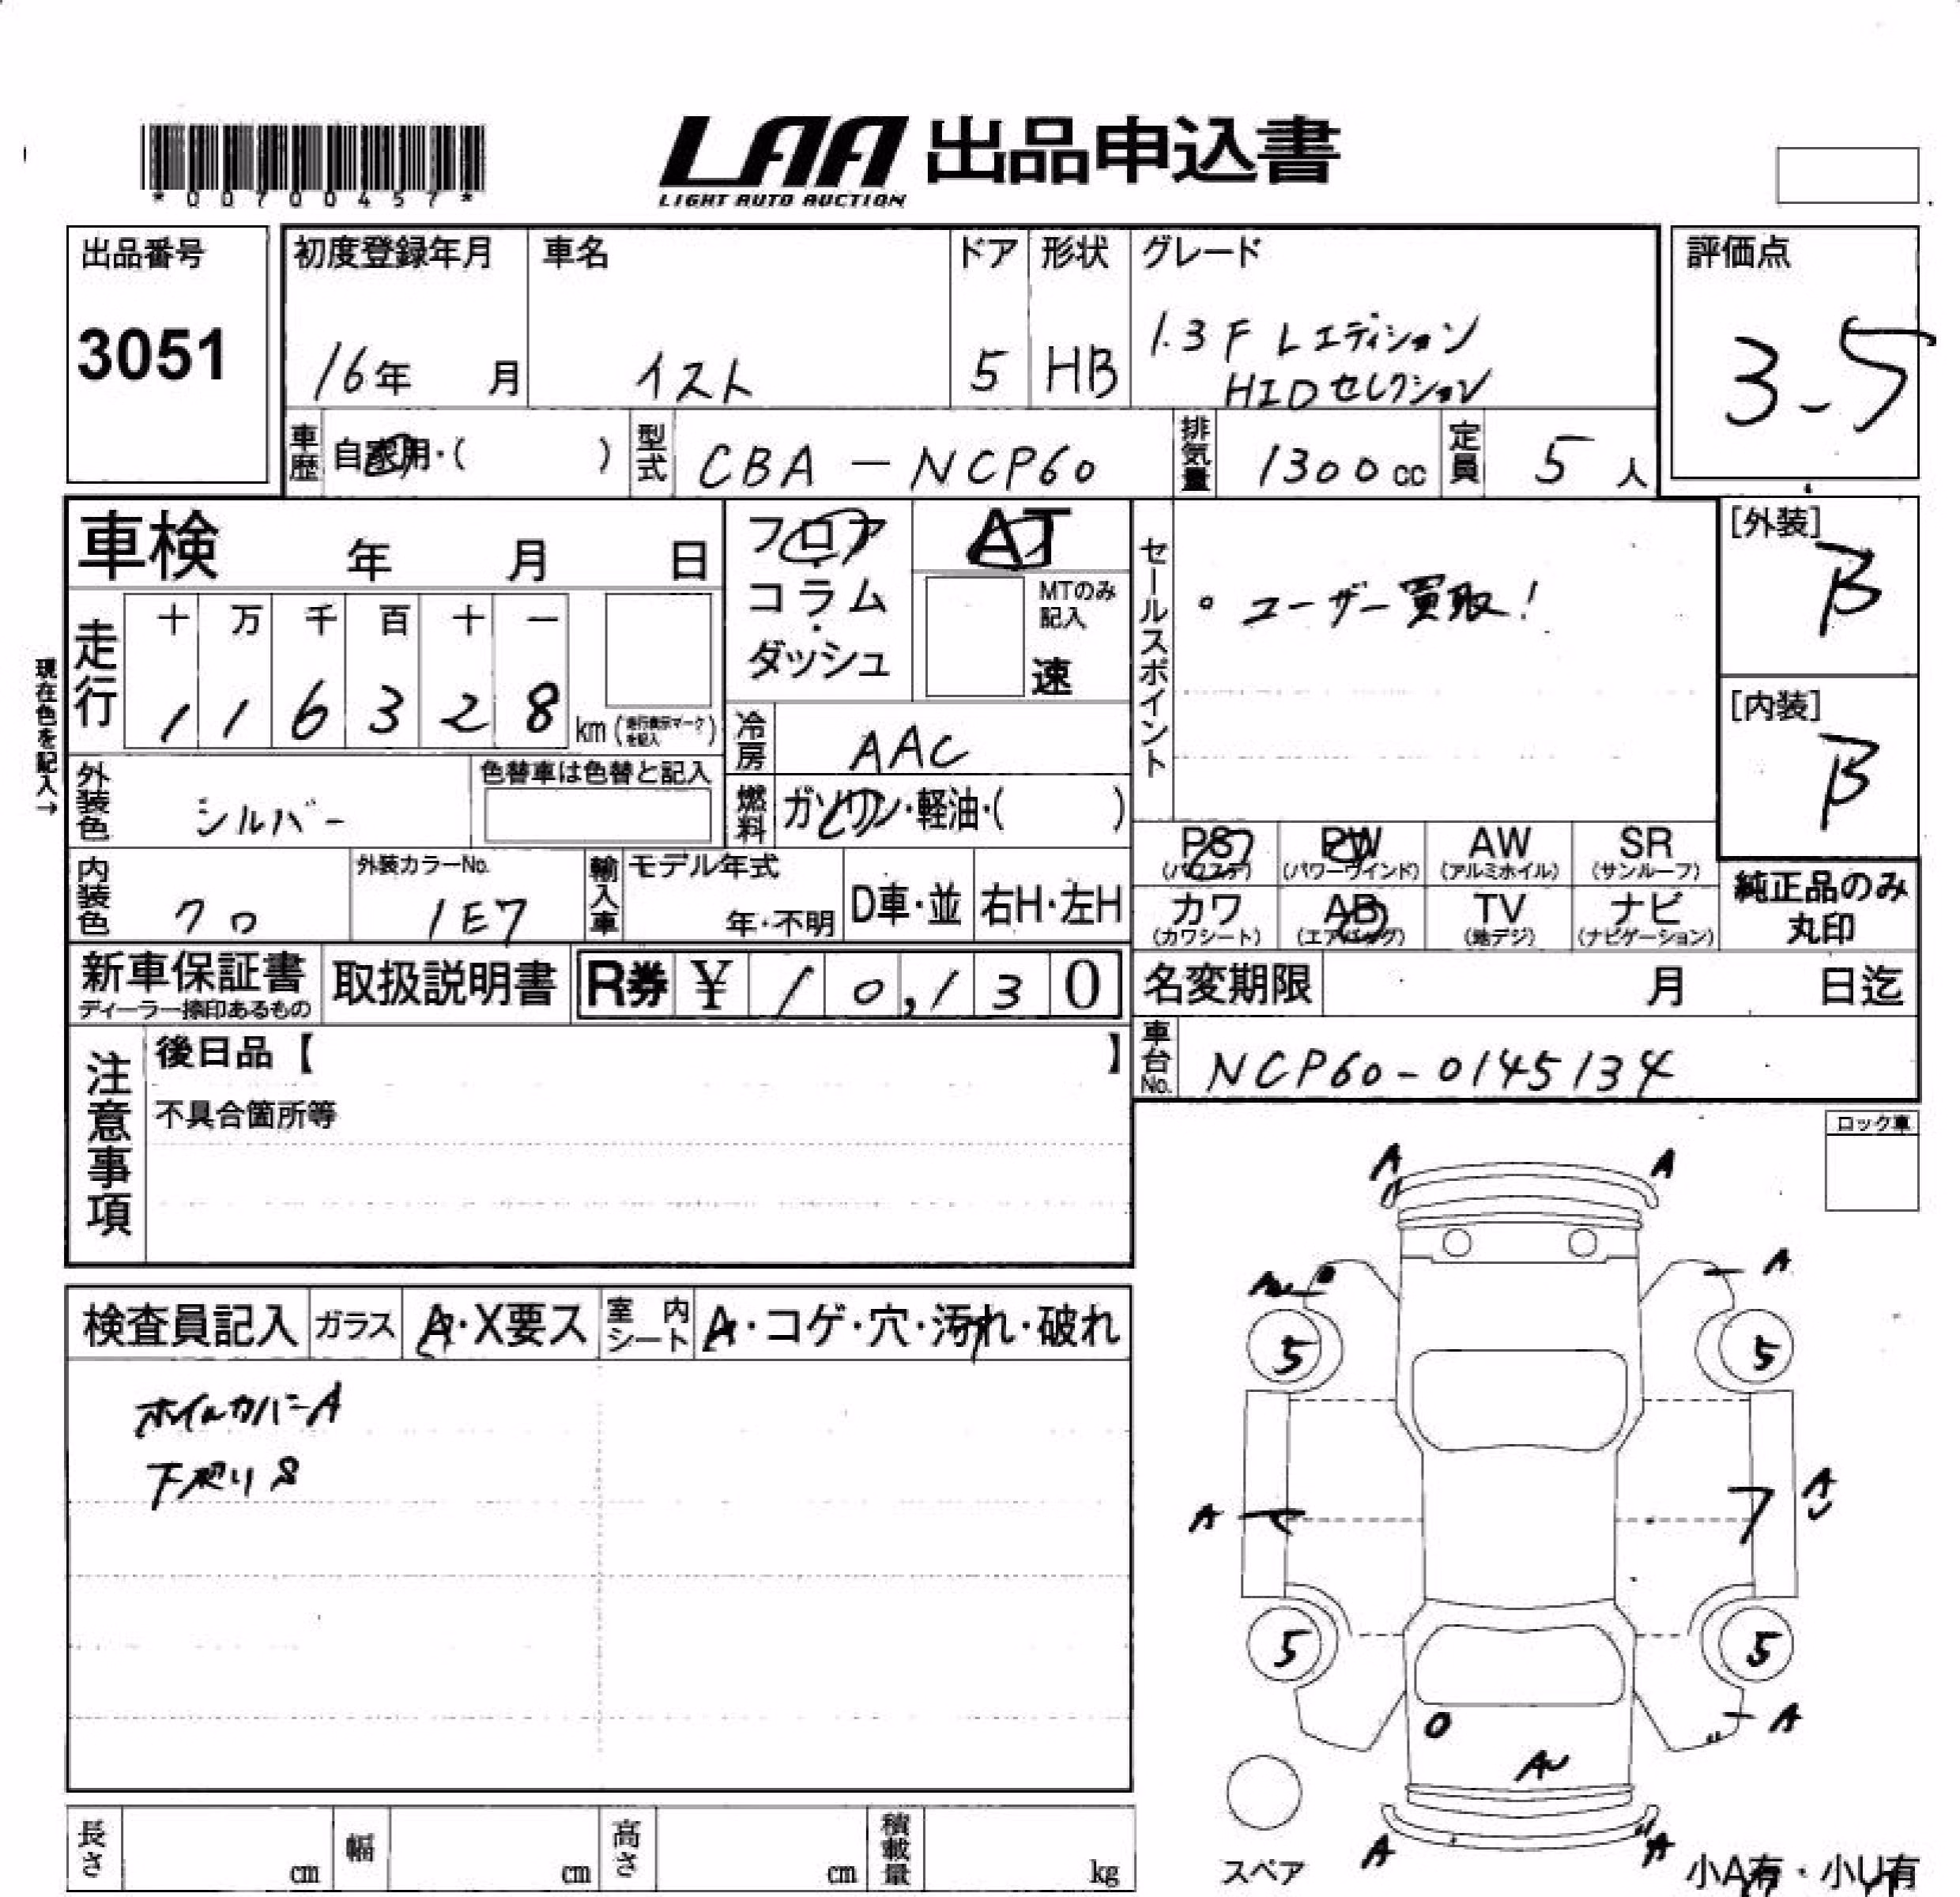 *00700457*
LAA 出品申込書
LIGHT AUTO AUCTION
出品番号
3051
初度登録年月
16年 月
車名
イスト
ドア
5
形状
HB
グレード
1.3F Lエディション
HIDセレクション
評価点
3-5
車歴
自家用・( )
型式
CBA-NCP60
排気量
1300cc
定員
5人
車検 年 月 日
フロア
コラム
ダッシュ
AT
MTのみ
記入
速
セールスポイント
。ユーザー買取!
[外装]
B
[内装]
B
現在色を記入→
走行
十 万 千 百 十 一
1 1 6 3 2 8 km (走行表示マークを記入)
冷房
AAC
外装色
シルバー
色替車は色替と記入
燃料
ガソリン・軽油・( )
PS
(パワステ)
PW
(パワーウインド)
AW
(アルミホイル)
SR
(サンルーフ)
内装色
クロ
外装カラーNo.
1E7
輸入車
モデル年式
年・不明
D車・並
右H・左H
カワ
(カワシート)
AB
(エアバッグ)
TV
(地デジ)
ナビ
(ナビゲーション)
純正品のみ
丸印
新車保証書
ディーラー捺印あるもの
取扱説明書
R券 ¥ 10,130
名変期限 月 日迄
車台No.
NCP60-0145134
注意事項
後日品【 】
不具合箇所等
ロック車
検査員記入
ガラス
A・X要ス
室内シート
A・コゲ・穴・汚れ・破れ
ホイルカバーA
下廻りS
A A
AU A
5 5
A A
U
5 5
A
O
AU
A A
スペア
小A有・小U有
長さ cm
幅 cm
高さ cm
積載量 kg